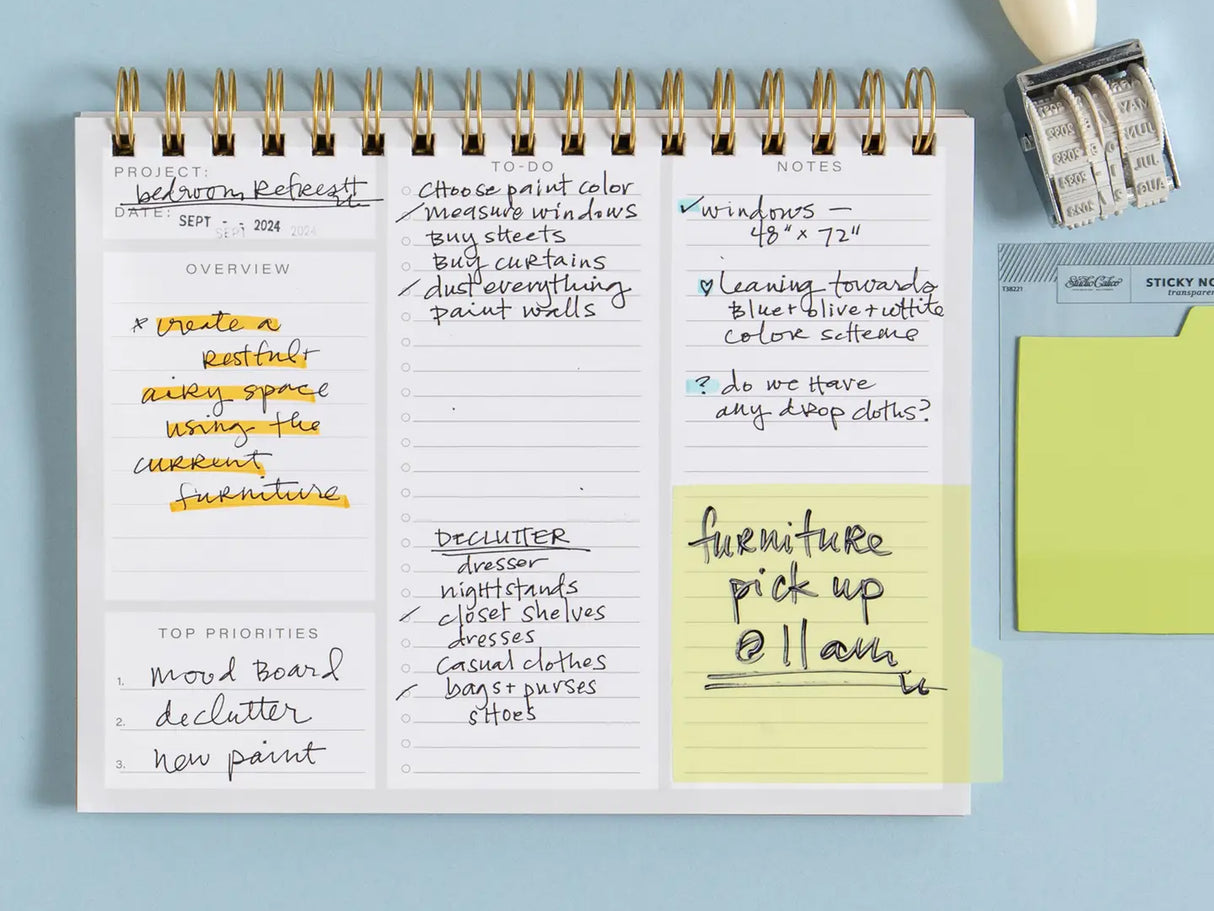 PROJECT:
bedroom Refresh
DATE: SEPT 2024
SEPT 2024
OVERVIEW
* create a
Restful +
airy space
using the
current
furniture
TOP PRIORITIES
1. mood Board
2. declutter
3. new paint
TO-DO
choose paint color
measure windows
Buy sheets
Buy curtains
dust everything
paint walls
DECLUTTER
dresser
nightstands
closet shelves
dresses
casual clothes
bags + purses
shoes
NOTES
✓ windows —
48" x 72"
♡ leaning towards
Blue + olive + white
color scheme
? do we have
any drop cloths?
furniture
pick up
@ 11 am
Studio Calico
STICKY NO
transparen
T38221
JUL
AUG